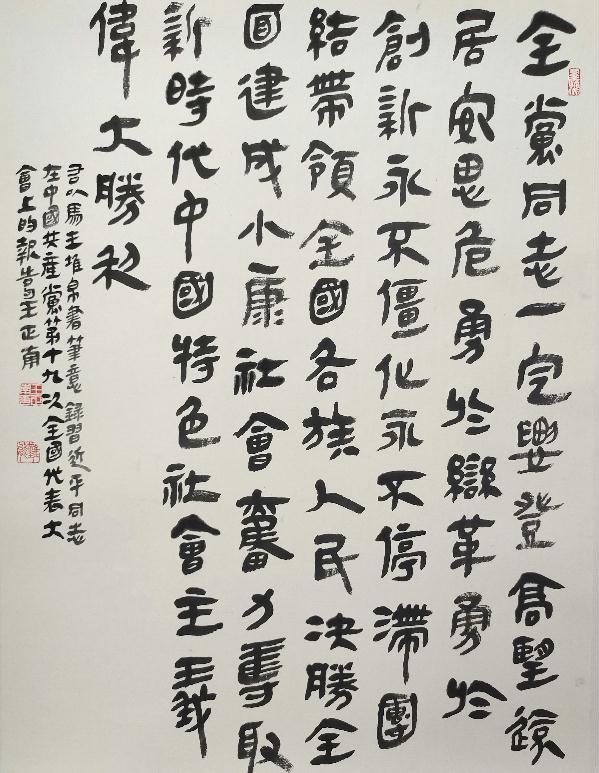 全黨同志一定要登高望遠
居安思危勇於變革勇於
創新永不僵化永不停滯團
結帶領全國各族人民决勝全
面建成小康社會奮力奪取
新時代中國特色社會主義
偉大勝利
以馬王堆帛書筆意錄習近平同志
在中國共產黨第十九次全國代表大
會上的報告王正